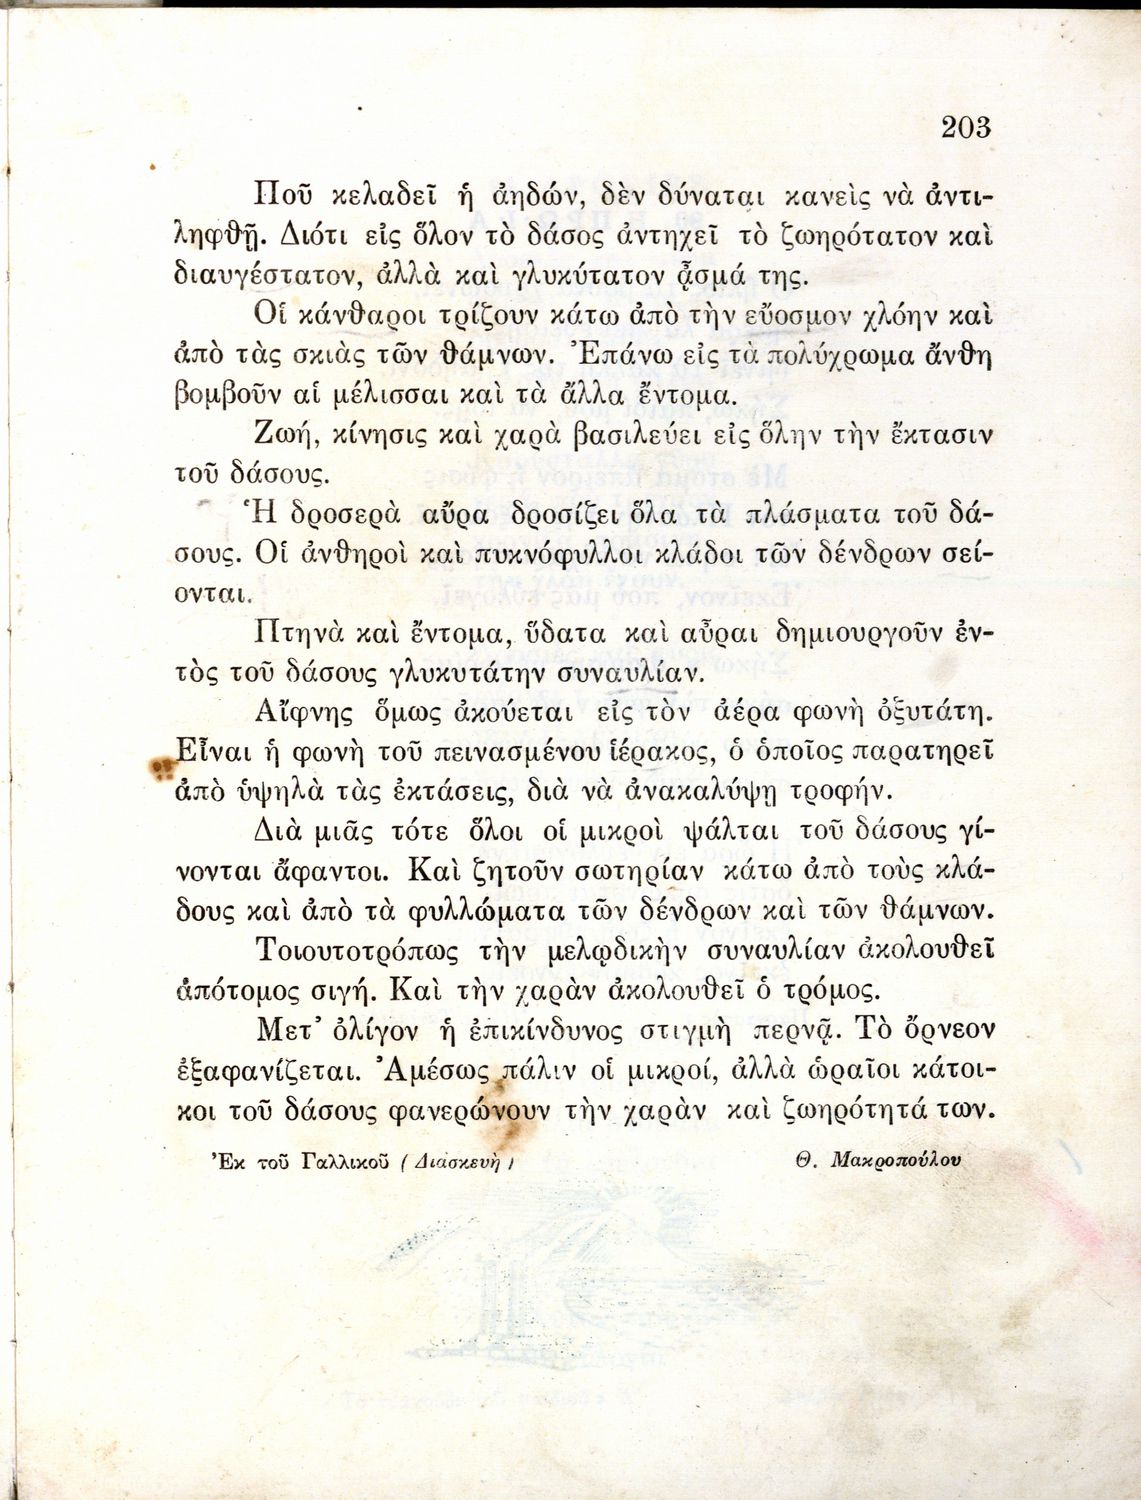 203
Ποῦ κελαδεῖ ἡ ἀηδών, δὲν δύναται κανεὶς νὰ ἀντι-
ληφθῇ. Διότι εἰς ὅλον τὸ δάσος ἀντηχεῖ τὸ ζωηρότατον καὶ
διαυγέστατον, ἀλλὰ καὶ γλυκύτατον ᾆσμά της.
Οἱ κάνθαροι τρίζουν κάτω ἀπὸ τὴν εὔοσμον χλόην καὶ
ἀπὸ τὰς σκιὰς τῶν θάμνων. Ἐπάνω εἰς τὰ πολύχρωμα ἄνθη
βομβοῦν αἱ μέλισσαι καὶ τὰ ἄλλα ἔντομα.
Ζωή, κίνησις καὶ χαρὰ βασιλεύει εἰς ὅλην τὴν ἔκτασιν
τοῦ δάσους.
Ἡ δροσερὰ αὔρα δροσίζει ὅλα τὰ πλάσματα τοῦ δά-
σους. Οἱ ἀνθηροὶ καὶ πυκνόφυλλοι κλάδοι τῶν δένδρων σεί-
ονται.
Πτηνὰ καὶ ἔντομα, ὕδατα καὶ αὖραι δημιουργοῦν ἐν-
τὸς τοῦ δάσους γλυκυτάτην συναυλίαν.
Αἴφνης ὅμως ἀκούεται εἰς τὸν ἀέρα φωνὴ ὀξυτάτη.
Εἶναι ἡ φωνὴ τοῦ πεινασμένου ἱέρακος, ὁ ὁποῖος παρατηρεῖ
ἀπὸ ὑψηλὰ τὰς ἐκτάσεις, διὰ νὰ ἀνακαλύψῃ τροφήν.
Διὰ μιᾶς τότε ὅλοι οἱ μικροὶ ψάλται τοῦ δάσους γί-
νονται ἄφαντοι. Καὶ ζητοῦν σωτηρίαν κάτω ἀπὸ τοὺς κλά-
δους καὶ ἀπὸ τὰ φυλλώματα τῶν δένδρων καὶ τῶν θάμνων.
Τοιουτοτρόπως τὴν μελῳδικὴν συναυλίαν ἀκολουθεῖ
ἀπότομος σιγή. Καὶ τὴν χαρὰν ἀκολουθεῖ ὁ τρόμος.
Μετ᾽ ὀλίγον ἡ ἐπικίνδυνος στιγμὴ περνᾷ. Τὸ ὄρνεον
ἐξαφανίζεται. Ἀμέσως πάλιν οἱ μικροί, ἀλλὰ ὡραῖοι κάτοι-
κοι τοῦ δάσους φανερώνουν τὴν χαρὰν καὶ ζωηρότητά των.
Ἐκ τοῦ Γαλλικοῦ (Διασκευὴ) Θ. Μακροπούλου